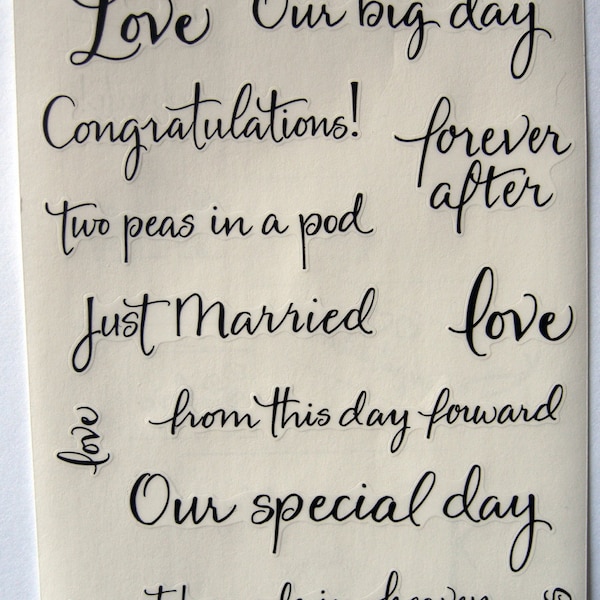 Love
Our big day
Congratulations!
forever
after
two peas in a pod
Just Married
love
love
from this day forward
Our special day
in heaven